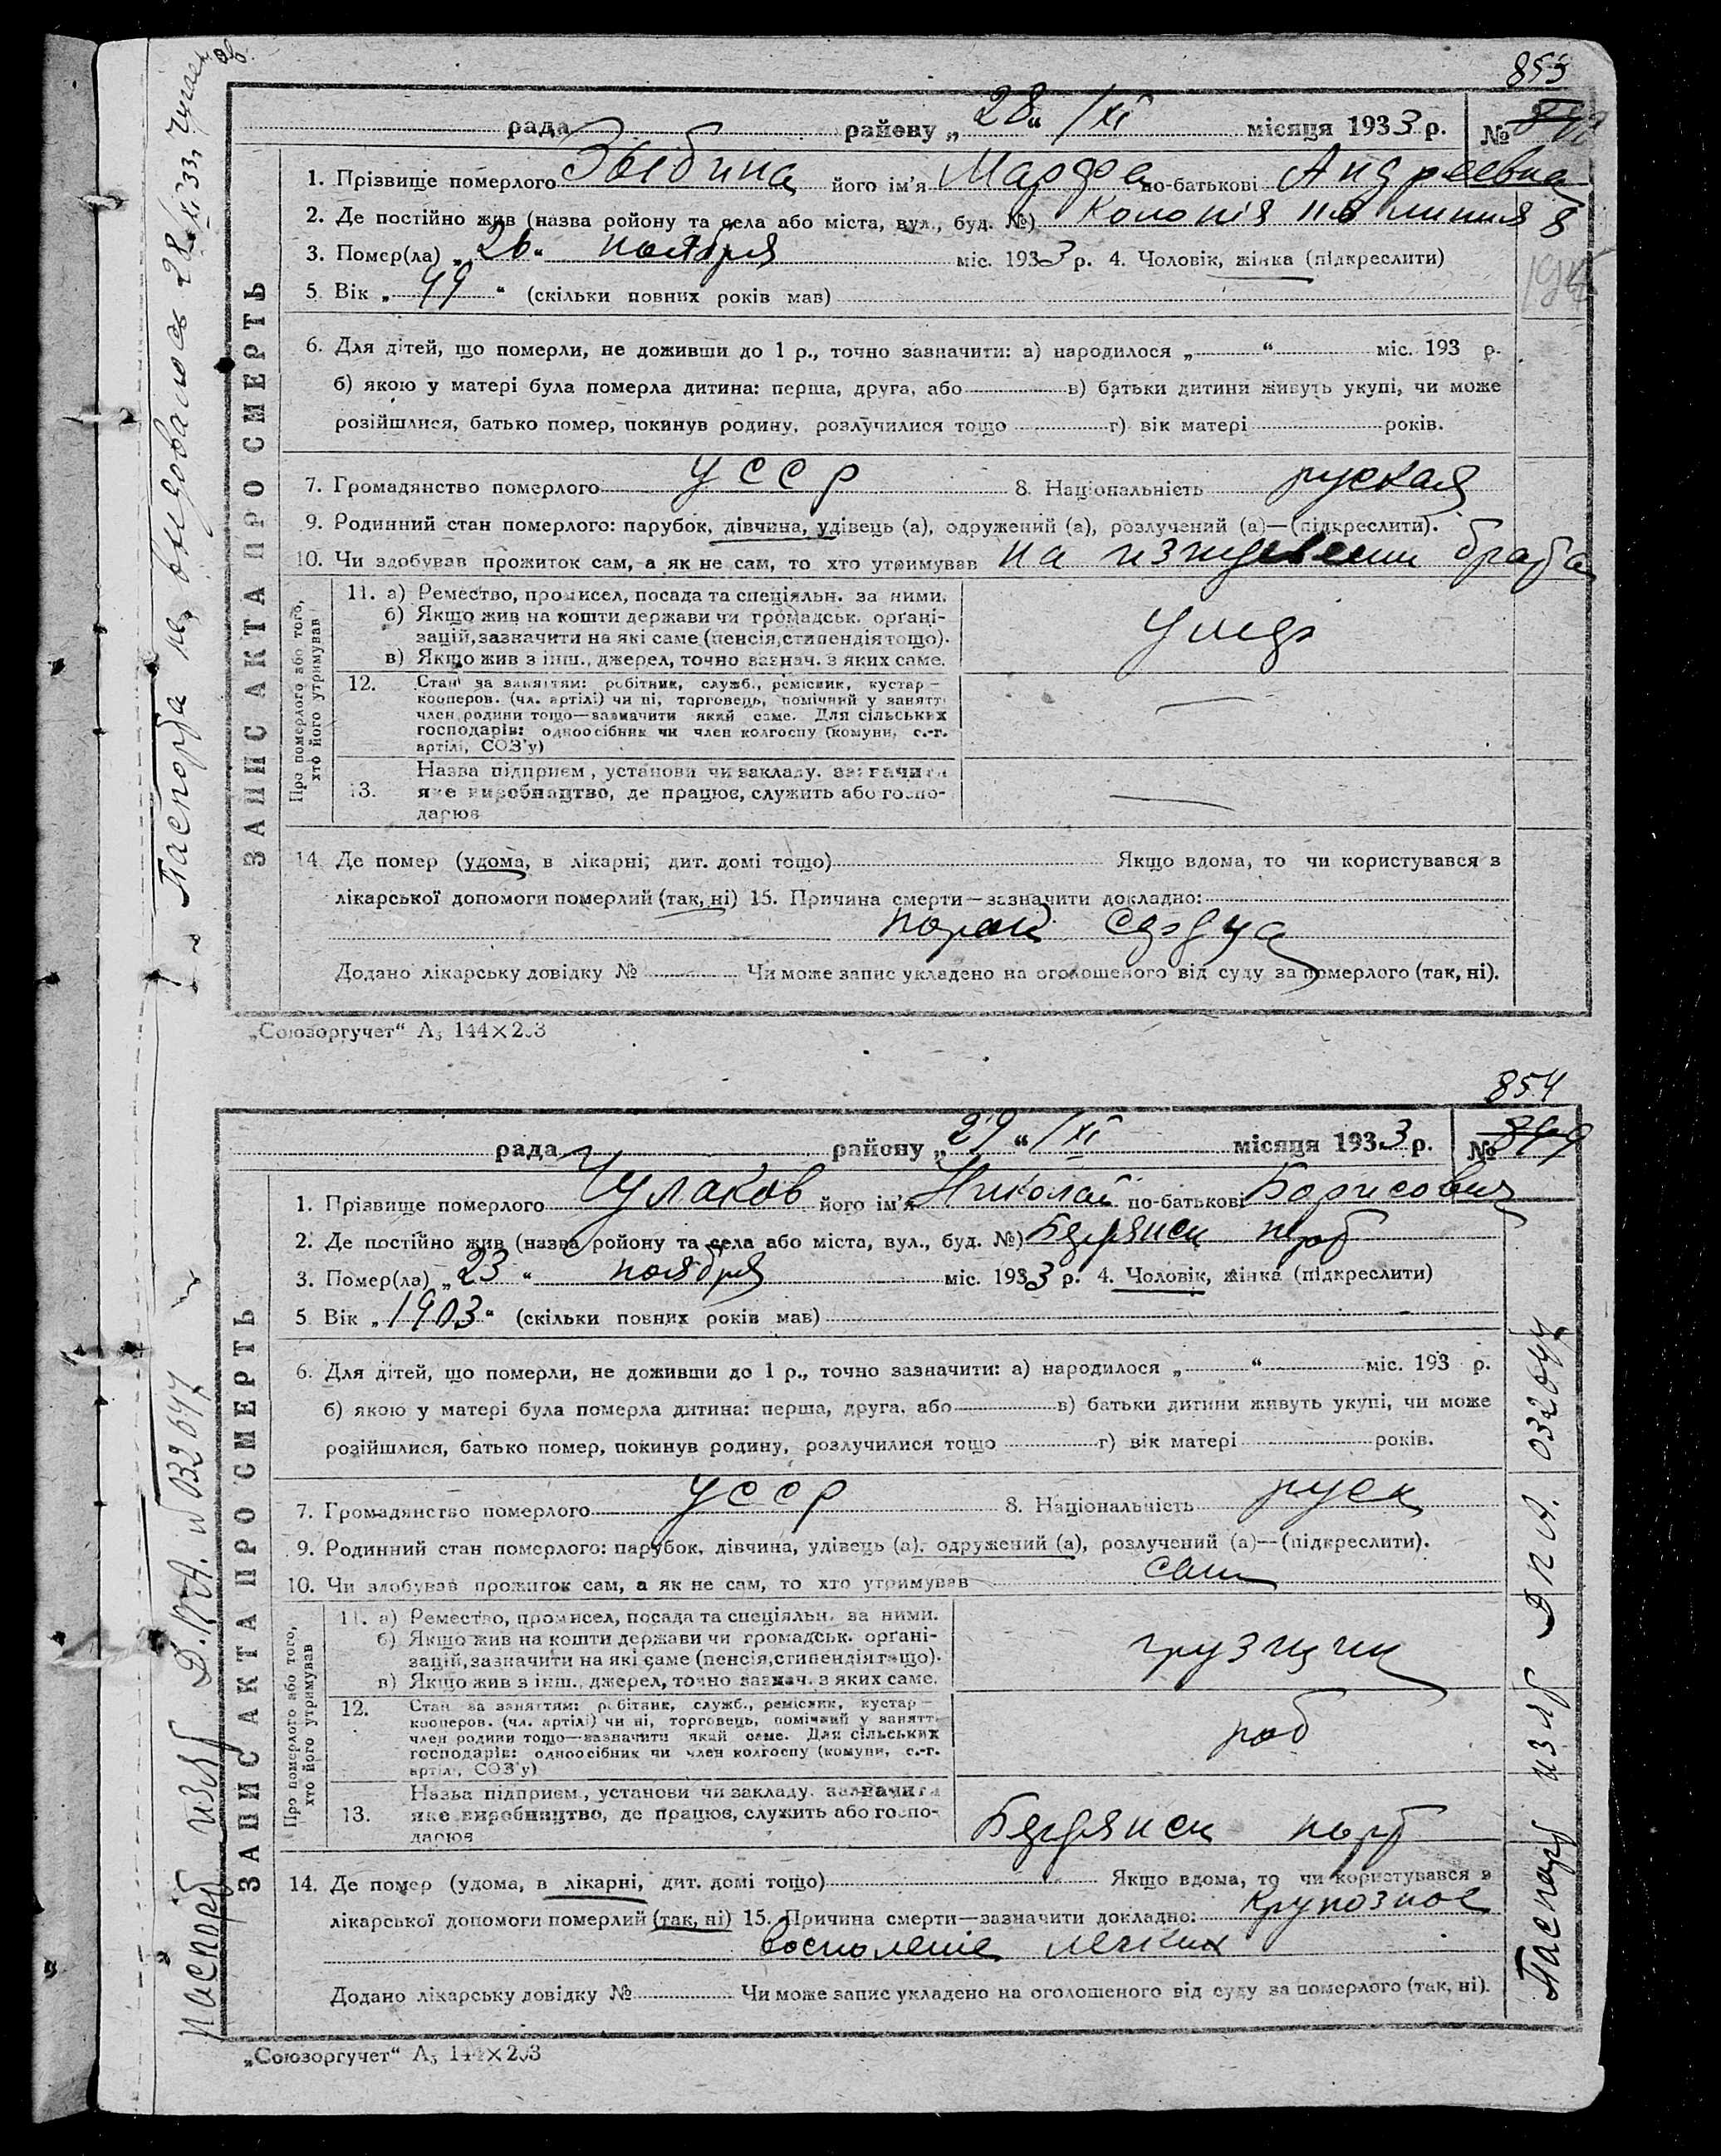 853
рада района „28“ /XI місяця 1933 р. №
1. Прізвище померлого Зыбина його ім'я Марфа по-батькові Андреевна
2. Де постійно жив (назва ройону та села або міста, вул., буд. №) Колонія линия 8
3. Помер(ла) „26“ ноября міс. 1933 р. 4. Чоловік, жінка (підкреслити)
5 Вік „49“ (скільки повних років мав)
6. Для дітей, що померли, не доживши до 1 р., точно зазначити: а) народилося „ “ міс. 193 р.
б) якою у матері була померла дитина: перша, друга, або в) батьки дитини живуть укупі, чи може
розійшлися, батько помер, покинув родину, розлучилися тощо г) вік матері років.
7. Громадянство померлого УССР 8. Національність руская
9. Родинний стан померлого: парубок, дівчина, удівець (а), одружений (а), розлучений (а)—(підкреслити).
10. Чи здобував прожиток сам, а як не сам, то хто утримував на иждевении брата
Про померлого або того, хто його утримував
11. а) Ремество, промисел, посада та спеціяльн. за ними.
б) Якщо жив на кошти держави чи громадськ. органі-
зацій, зазначити на які саме (пенсія, стипендія тощо).
в) Якщо жив з інш., джерел, точно зазнач. з яких саме.
12. Стан за заняттям: робітник, служб., ремісник, кустар—
кооперов. (чл. артілі) чи ні, торговець, помічний у занятті
член родини тощо—зазначити який саме. Для сільських
господарів: одноосібник чи член колгоспу (комуни, с.-г.
артілі, СОЗ'у)
—
Назва підприєм, установи чи закладу. зазначити
13. яке виробництво, де працює, служить або госпо-
дарює
—
14. Де помер (удома, в лікарні, дит. домі тощо) Якщо вдома, то чи користувався з
лікарської допомоги померлий (так, ні) 15. Причина смерти—зазначити докладно:
сердца
Додано лікарську довідку № Чи може запис укладено на оголошеного від суду за померлого (так, ні).
ЗАПИС АКТА ПРО СМЕРТЬ
„Союзоргучет“ А5 144×203
Паспорта не выдовалось 28/XI 33г
854
рада району „29“ /XI місяця 1933 р. № 849
1. Прізвище померлого Чулаков його ім'я Николай по-батькові Борисович
2. Де постійно жив (назва ройону та села або міста, вул., буд. №) Бердянск порт
3. Помер(ла) „23“ ноября міс. 1933 р. 4. Чоловік, жінка (підкреслити)
5 Вік „1903“ (скільки повних років мав)
6. Для дітей, що померли, не доживши до 1 р., точно зазначити: а) народилося „ “ міс. 193 р.
б) якою у матері була померла дитина: перша, друга, або в) батьки дитини живуть укупі, чи може
розійшлися, батько помер, покинув родину, розлучилися тощо г) вік матері років.
7. Громадянство померлого УССР 8. Національність руск
9. Родинний стан померлого: парубок, дівчина, удівець (а), одружений (а), розлучений (а)—(підкреслити).
10. Чи здобував прожиток сам, а як не сам, то хто утримував сам
Про померлого або того, хто його утримував
11. а) Ремество, промисел, посада та спеціяльн. за ними.
б) Якщо жив на кошти держави чи громадськ. органі-
зацій, зазначити на які саме (пенсія, стипендія тощо).
в) Якщо жив з інш., джерел, точно зазнач. з яких саме.
грузчик
12. Стан за заняттям: робітник, служб., ремісник, кустар—
кооперов. (чл. артілі) чи ні, торговець, помічний у занятті
член родини тощо—зазначити який саме. Для сільських
господарів: одноосібник чи член колгоспу (комуни, с.-г.
артілі, СОЗ'у)
роб
Назва підприєм, установи чи закладу. зазначити
13. яке виробництво, де працює, служить або госпо-
дарює
Бердянск порт
14. Де помер (удома, в лікарні, дит. домі тощо) Якщо вдома, то чи користувався з
лікарської допомоги померлий (так, ні) 15. Причина смерти—зазначити докладно: Крупозное
восполение легких
Додано лікарську довідку № Чи може запис укладено на оголошеного від суду за померлого (так, ні).
ЗАПИС АКТА ПРО СМЕРТЬ
„Союзоргучет“ А5 144×203
паспорт 032644
Паспорт 032644